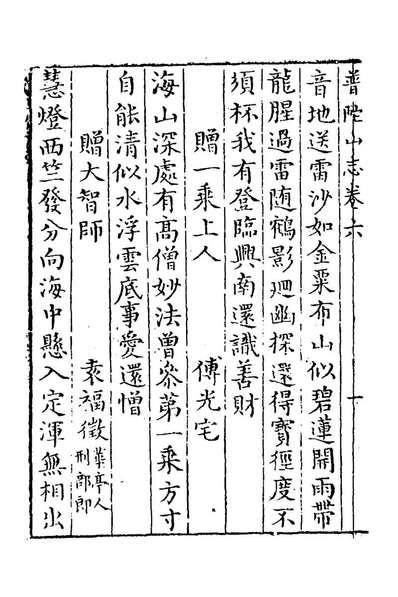 普陀山志卷六 一
音地送雷沙如金粟布山似碧蓮開雨帶
龍腥過雷随鶴影廻幽探還得寳徑度不
須杯我有登臨興南還識善財
贈一乘上人 傅光宅
海山深處有髙僧妙法曽叅第一乗方寸
自能清似水浮雲底事愛還憎
贈大智師 袁福徵 華亭人刑部郎
慧燈西竺發分向海中懸入定渾無相出